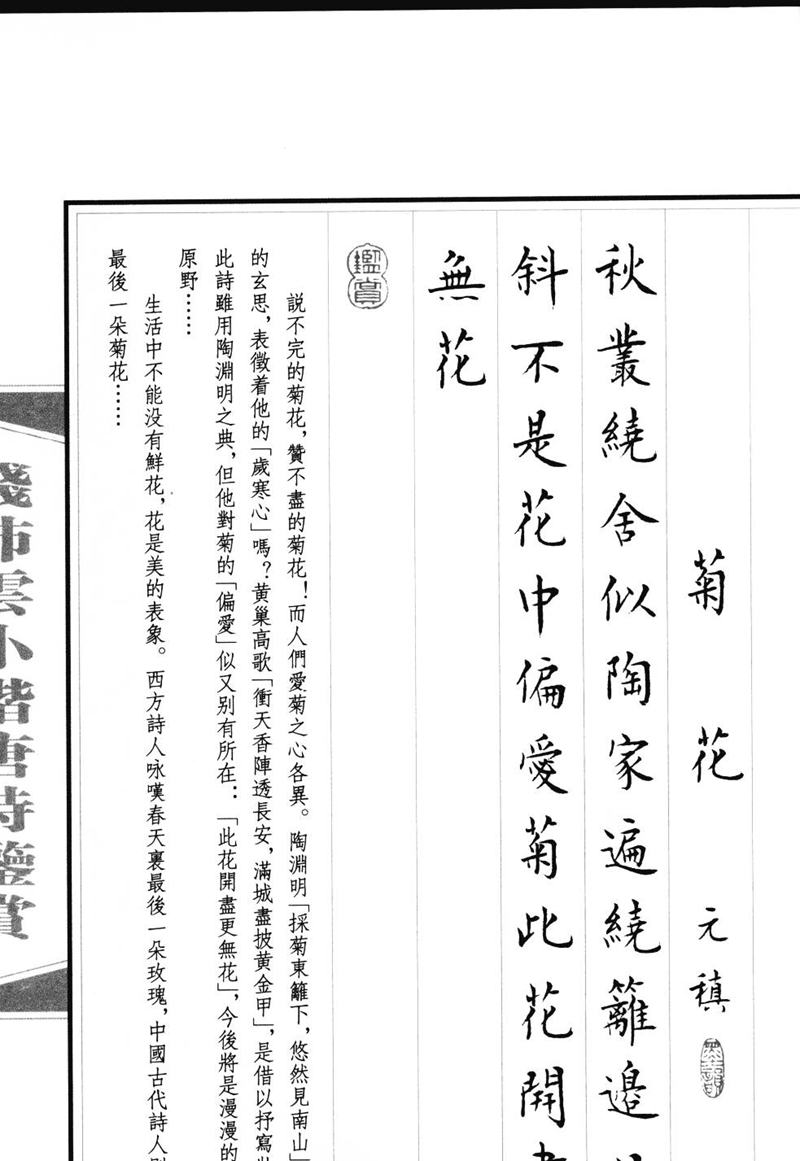 菊花 元稹
秋叢繞舍似陶家遍繞籬邊
斜不是花中偏愛菊此花開
無花
鑑賞
説不完的菊花，贊不盡的菊花！而人們愛菊之心各異。陶淵明「採菊東籬下，悠然見南山」
的玄思，表徵着他的「歲寒心」嗎？黄巢高歌「衝天香陣透長安，滿城盡披黄金甲」，是借以抒寫
此詩雖用陶淵明之典，但他對菊的「偏愛」似又别有所在：「此花開盡更無花」，今後將是漫漫的
原野……
生活中不能没有鮮花，花是美的表象。西方詩人咏嘆春天裏最後一朵玫瑰，中國古代詩人
最後一朵菊花……
錢沛雲小楷唐詩鑒賞